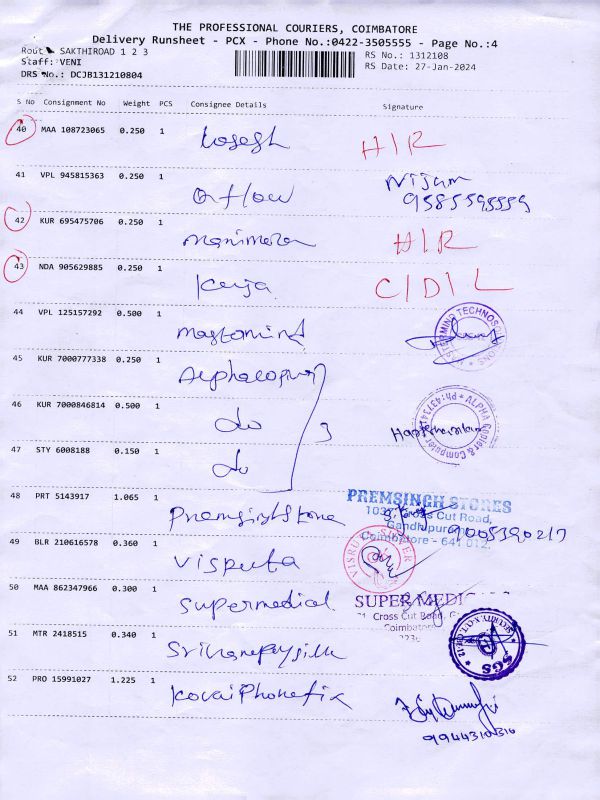 THE PROFESSIONAL COURIERS, COIMBATORE
Delivery Runsheet - PCX - Phone No.:0422-3505555 - Page No.:4
Rout SAKTHIROAD 1 2 3
RS No.: 1312108
Staff: VENI
RS Date: 27-Jan-2024
DRS No.: DCJB131210804
S No Consignment No Weight PCS Consignee Details Signature
40 MAA 108723065 0.250 1 H/R
41 VPL 945815363 0.250 1 Nijam
9585595559
42 KUR 695475706 0.250 1 H/R
43 NDA 905629885 0.250 1 C/D/L
44 VPL 125157292 0.500 1
45 KUR 7000777338 0.250 1
46 KUR 7000846814 0.500 1 do 3
47 STY 6008188 0.150 1 do
ALPHA Copier & Computer
48 PRT 5143917 1.065 1
PREMSINGH STORES
Cross Cut Road,
Gandhipuram
Coimbatore - 641 012.
49 BLR 210616578 0.360 1 visputa
50 MAA 862347966 0.300 1 supermedical
SUPER MEDIC
Cross Cut Road, G
Coimbatore
51 MTR 2418515 0.340 1
SGS
52 PRO 15991027 1.225 1 kovaiphonefix